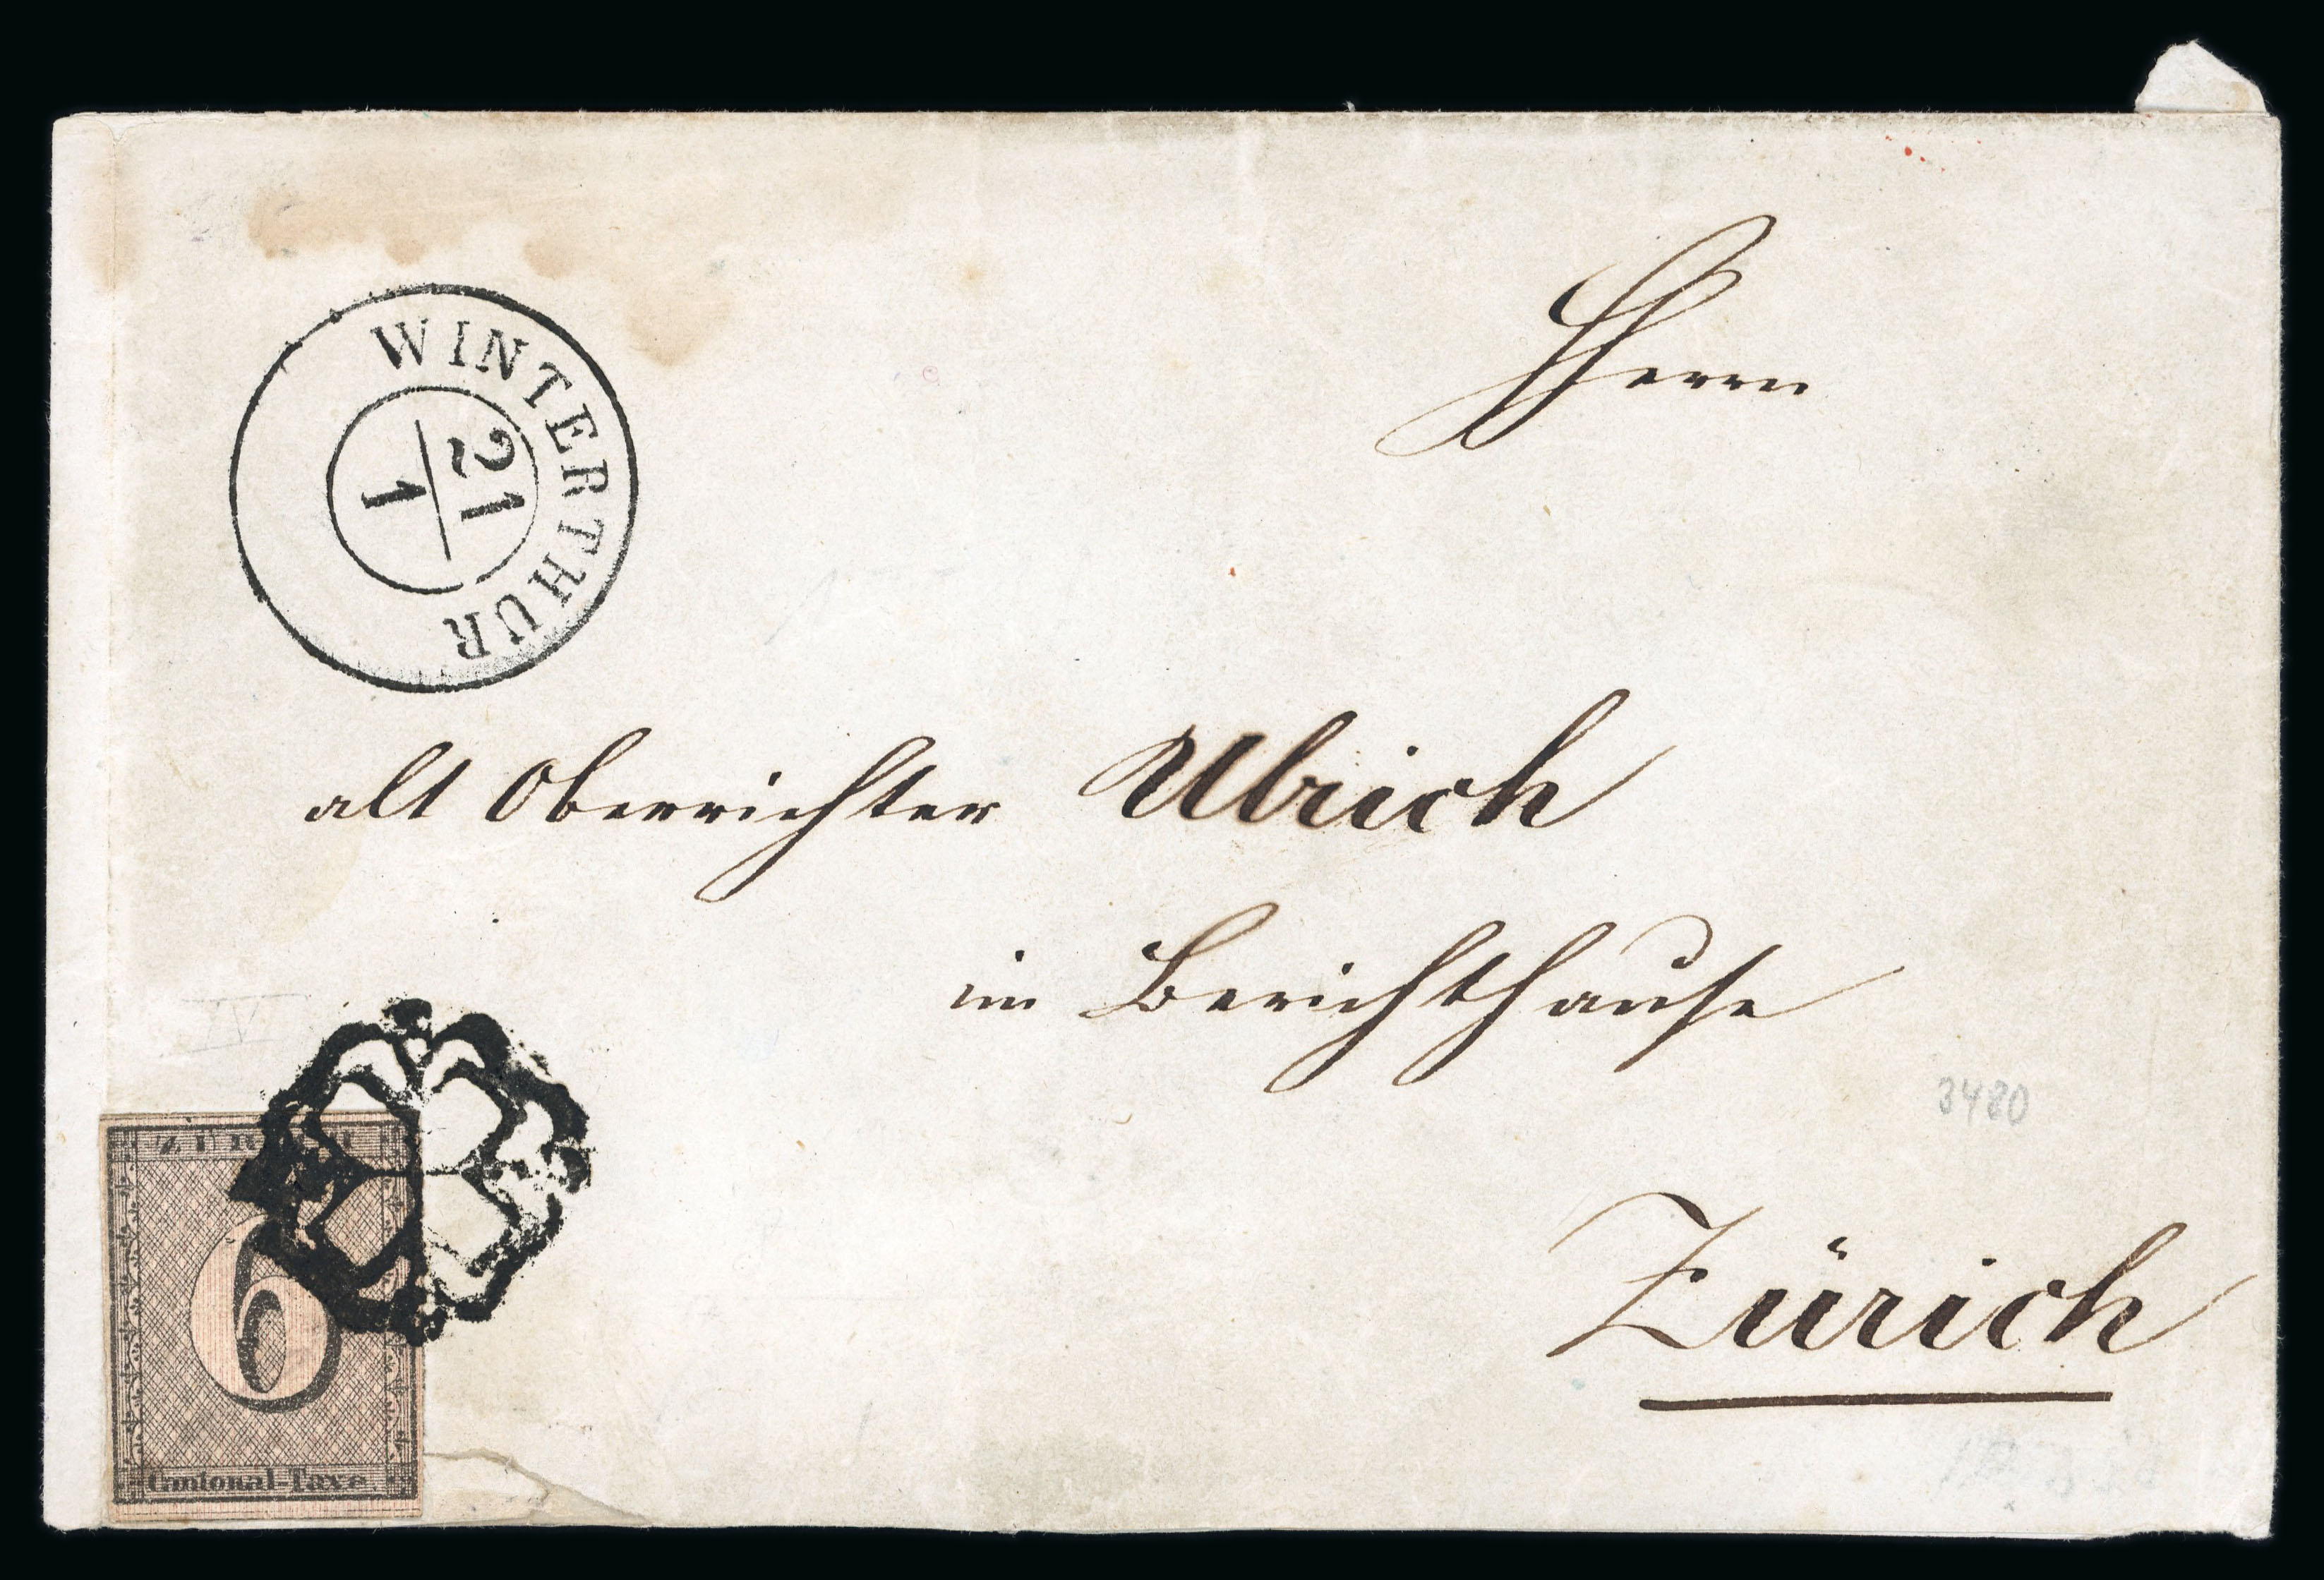 Herrn
WINTERTHUR
21
1
alt Oberrichter Ulrich
im Berichthause
IV
3480
ZÜRICH
6
Cantonal-Taxe
Zürich